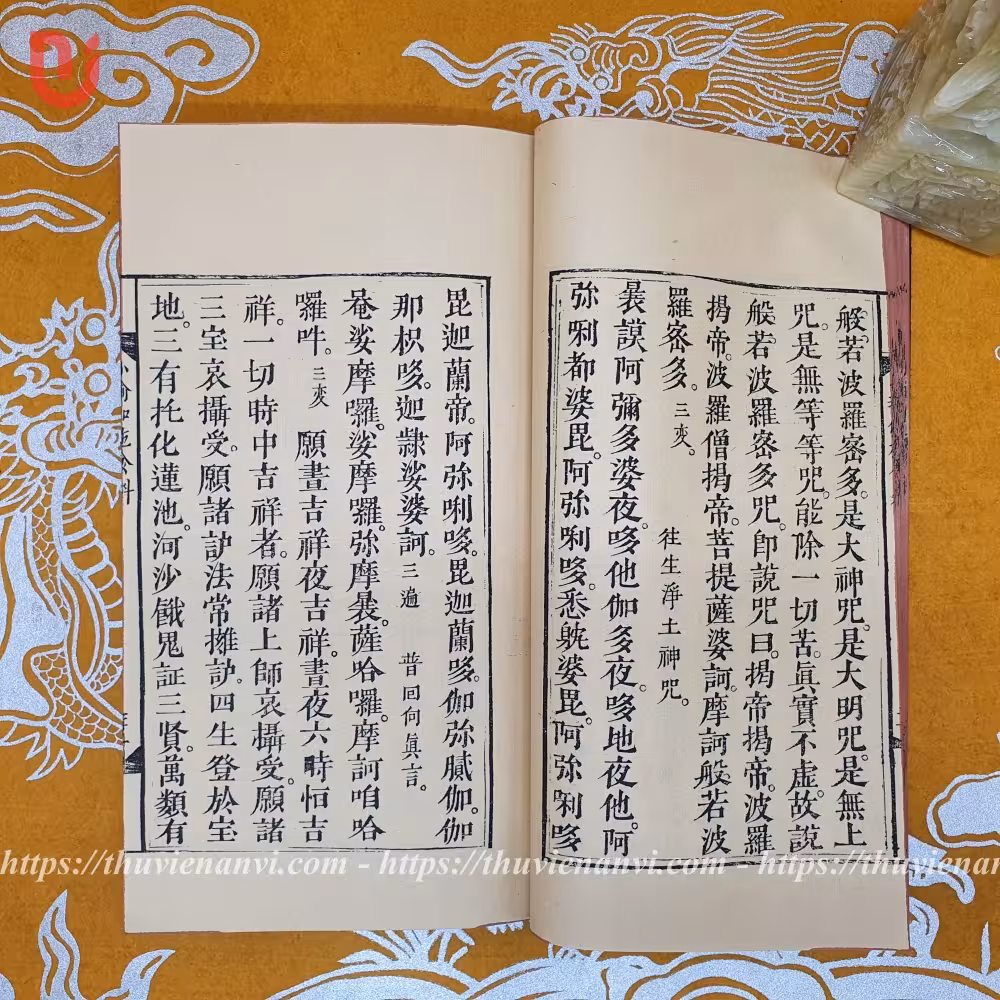 般若波羅密多。是大神咒。是大明咒。是無上
咒。是無等等咒。能除一切苦。眞實不虛。故說
般若波羅密多咒。卽說咒曰。揭帝揭帝。波羅
揭帝。波羅僧揭帝。菩提薩婆訶。摩訶般若波
羅密多。三変。 往生淨土神咒。
曩謨阿彌多婆夜。哆他伽多夜。哆地夜他。阿
弥唎都婆毘。阿弥唎哆。悉躭婆毘。阿弥唎哆
毘迦蘭帝。阿弥唎哆。毘迦蘭哆。伽弥膩伽。伽
那枳哆。迦隷娑婆訶。三遍 普回向眞言。
唵娑摩囉。娑摩囉。弥摩曩。薩哈囉。摩訶咱哈
囉吽。三変 願晝吉祥夜吉祥。晝夜六時恒吉
祥。一切時中吉祥者。願諸上師哀攝受。願諸
三宝哀攝受。願諸護法常擁護。四生登於宝
地。三有托化蓮池。河沙餓鬼証三賢。萬類有
https://thuvienanvi.com - https://thuvienanvi.com - https://thuvienanvi